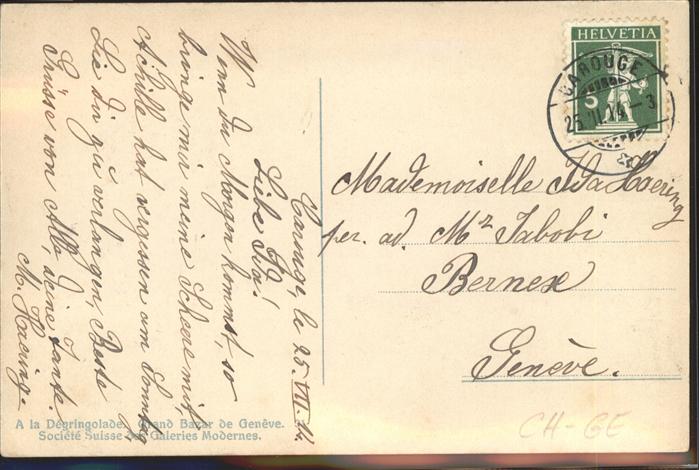 Carouge, le 25. VII. 14.
Liebe Ida!
Wenn du Morgen kommst, so
bringe mir meine Scheere mit,
Achille hat vergessen am Sonntag
Sie dir zu verlangen, Beste
Grüsse von Allb. deine Tante.
M. Haering.
HELVETIA
5
CAROUGE
25. VII. 14 - 3
Mademoiselle Ida Haering
per. ad. Mr Jabobi
Bernex
Genève.
A la Dégringolade. Grand Bazar de Genêve.
Société Suisse des Galeries Modernes.
CH-GE